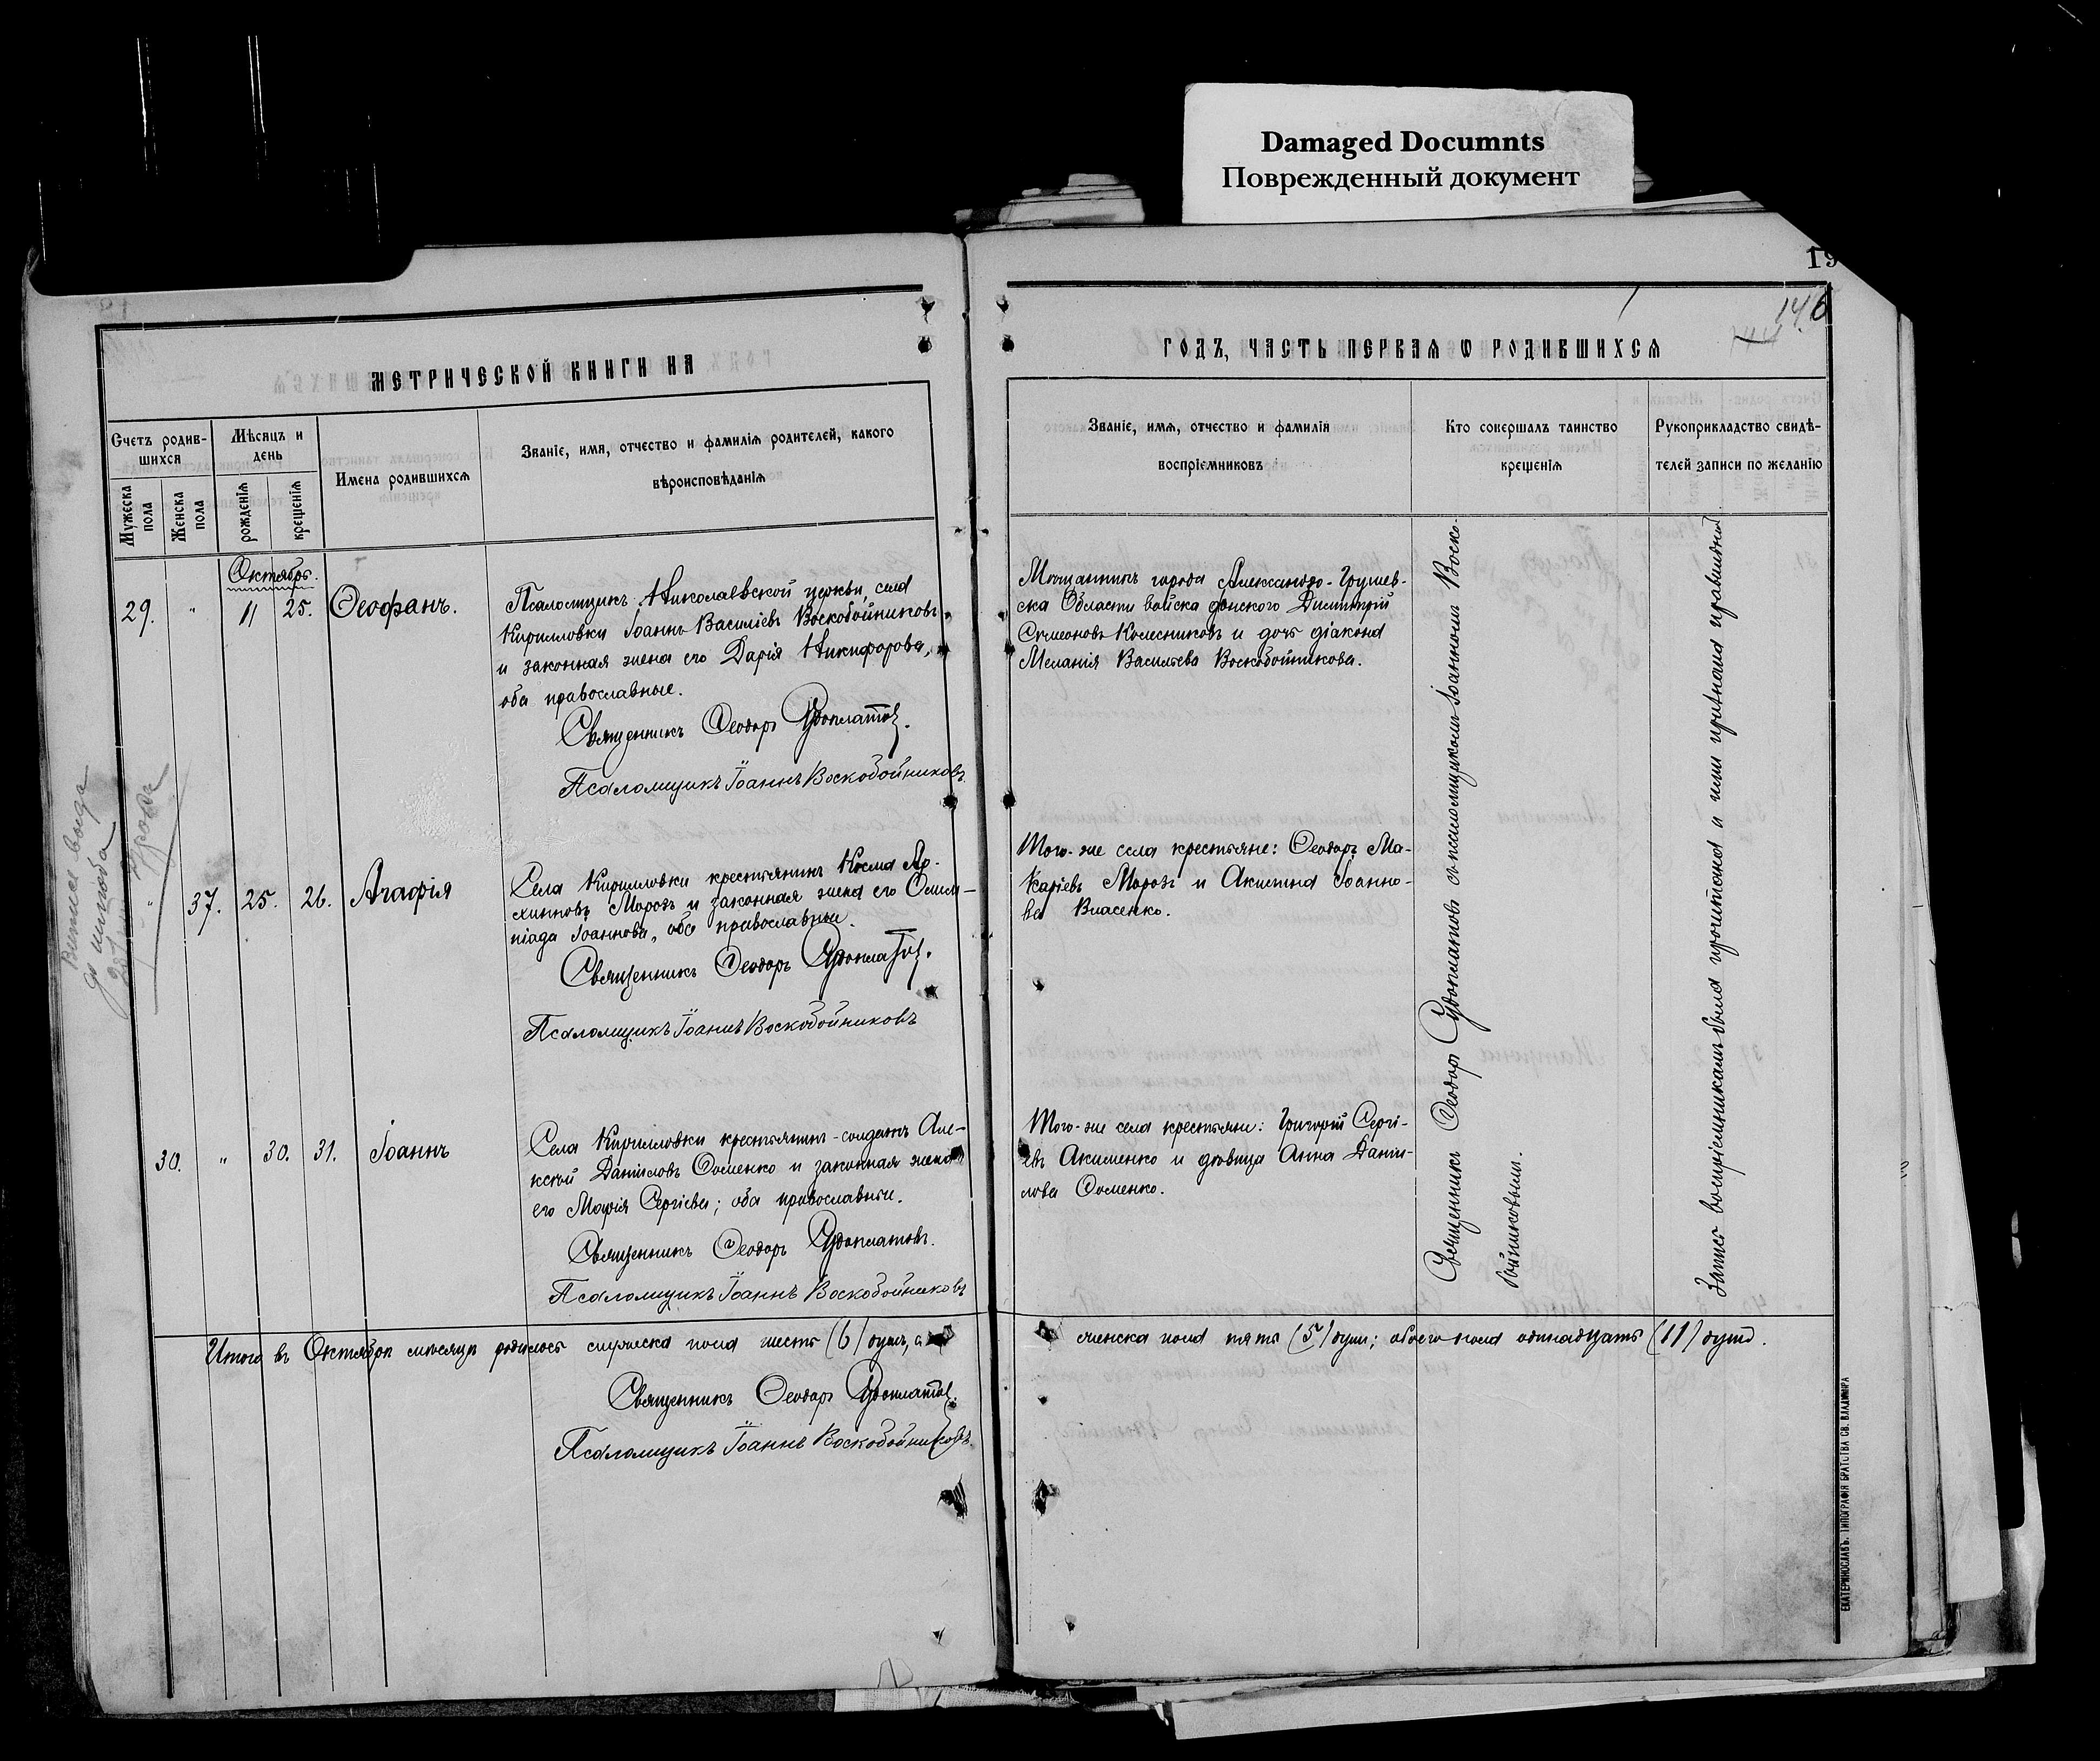 Damaged Documnts
Поврежденный документ
19
146
МЕТРИЧЕСКОЙ КНИГИ НА
ГОДЪ, ЧАСТЬ ПЕРВАЯ Ѡ РОДИВШИХСЯ
Счетъ родив-
шихся
Мужеска
пола
Женска
пола
Мѣсяцъ и
день
рожденія
крещенія
Имена родившихся
Званіе, имя, отчество и фамилія родителей, какого
вѣроисповѣданія
Званіе, имя, отчество и фамилія
воспріемниковъ
Кто совершалъ таинство
крещенія
Рукоприкладство свидѣ-
телей записи по желанію
Октябрь.
29. " 11 25. Ѳеофанъ.
Псаломщикъ Николаевской церкви, села
Кирилловки Іоаннъ Василіевъ Воскобойниковъ
и законная жена его Дарія Никифорова,
оба православные.
Священникъ Ѳеодоръ Судоплатовъ.
Псаломщикъ Іоаннъ Воскобойниковъ
Мѣщанинъ города Александро-Грушев-
ска Области войска донского Димитрій
Сѵмеоновъ Колесниковъ и дочь діакона
Меланія Васильева Воскобойникова.
" 37. 25. 26. Агафія
Села Кирилловки крестьянинъ Косма Ар-
хипповъ Морозъ и законная жена его Олим-
піада Іоаннова, оба православные.
Священникъ Ѳеодоръ Судоплатовъ.
Псаломщикъ Іоаннъ Воскобойниковъ
Того-же села крестьяне: Ѳеодоръ Ма-
каріевъ Морозъ и Акилина Іоанно-
ва Власенко.
30. " 30. 31. Іоаннъ
Села Кирилловки крестьянинъ-солдатъ Але-
ксѣй Даниловъ Фоменко и законная жена
его Марія Сергіева; оба православные.
Священникъ Ѳеодоръ Судоплатовъ.
Псаломщикъ Іоаннъ Воскобойниковъ
Того-же села крестьяне: Григорій Сергі-
евъ Акименко и дѣвица Анна Дани-
лова Фоменко.
Священникъ Ѳеодоръ Судоплатовъ съ псаломщикомъ Іоанномъ Воско-
бойниковымъ.
Запись воспріемникамъ была прочитана и ими признана правильной
Итого въ Октябрѣ мѣсяцѣ родилось мужеска пола шесть (6) душъ, а
женска пола пять (5) душъ; обоего пола одинадцать (11) душъ.
Священникъ Ѳеодоръ Судоплатовъ.
Псаломщикъ Іоаннъ Воскобойниковъ.
ЕКАТЕРИНОСЛАВЪ. ТИПОГРАФІЯ БРАТСТВА СВ. ВЛАДИМІРА